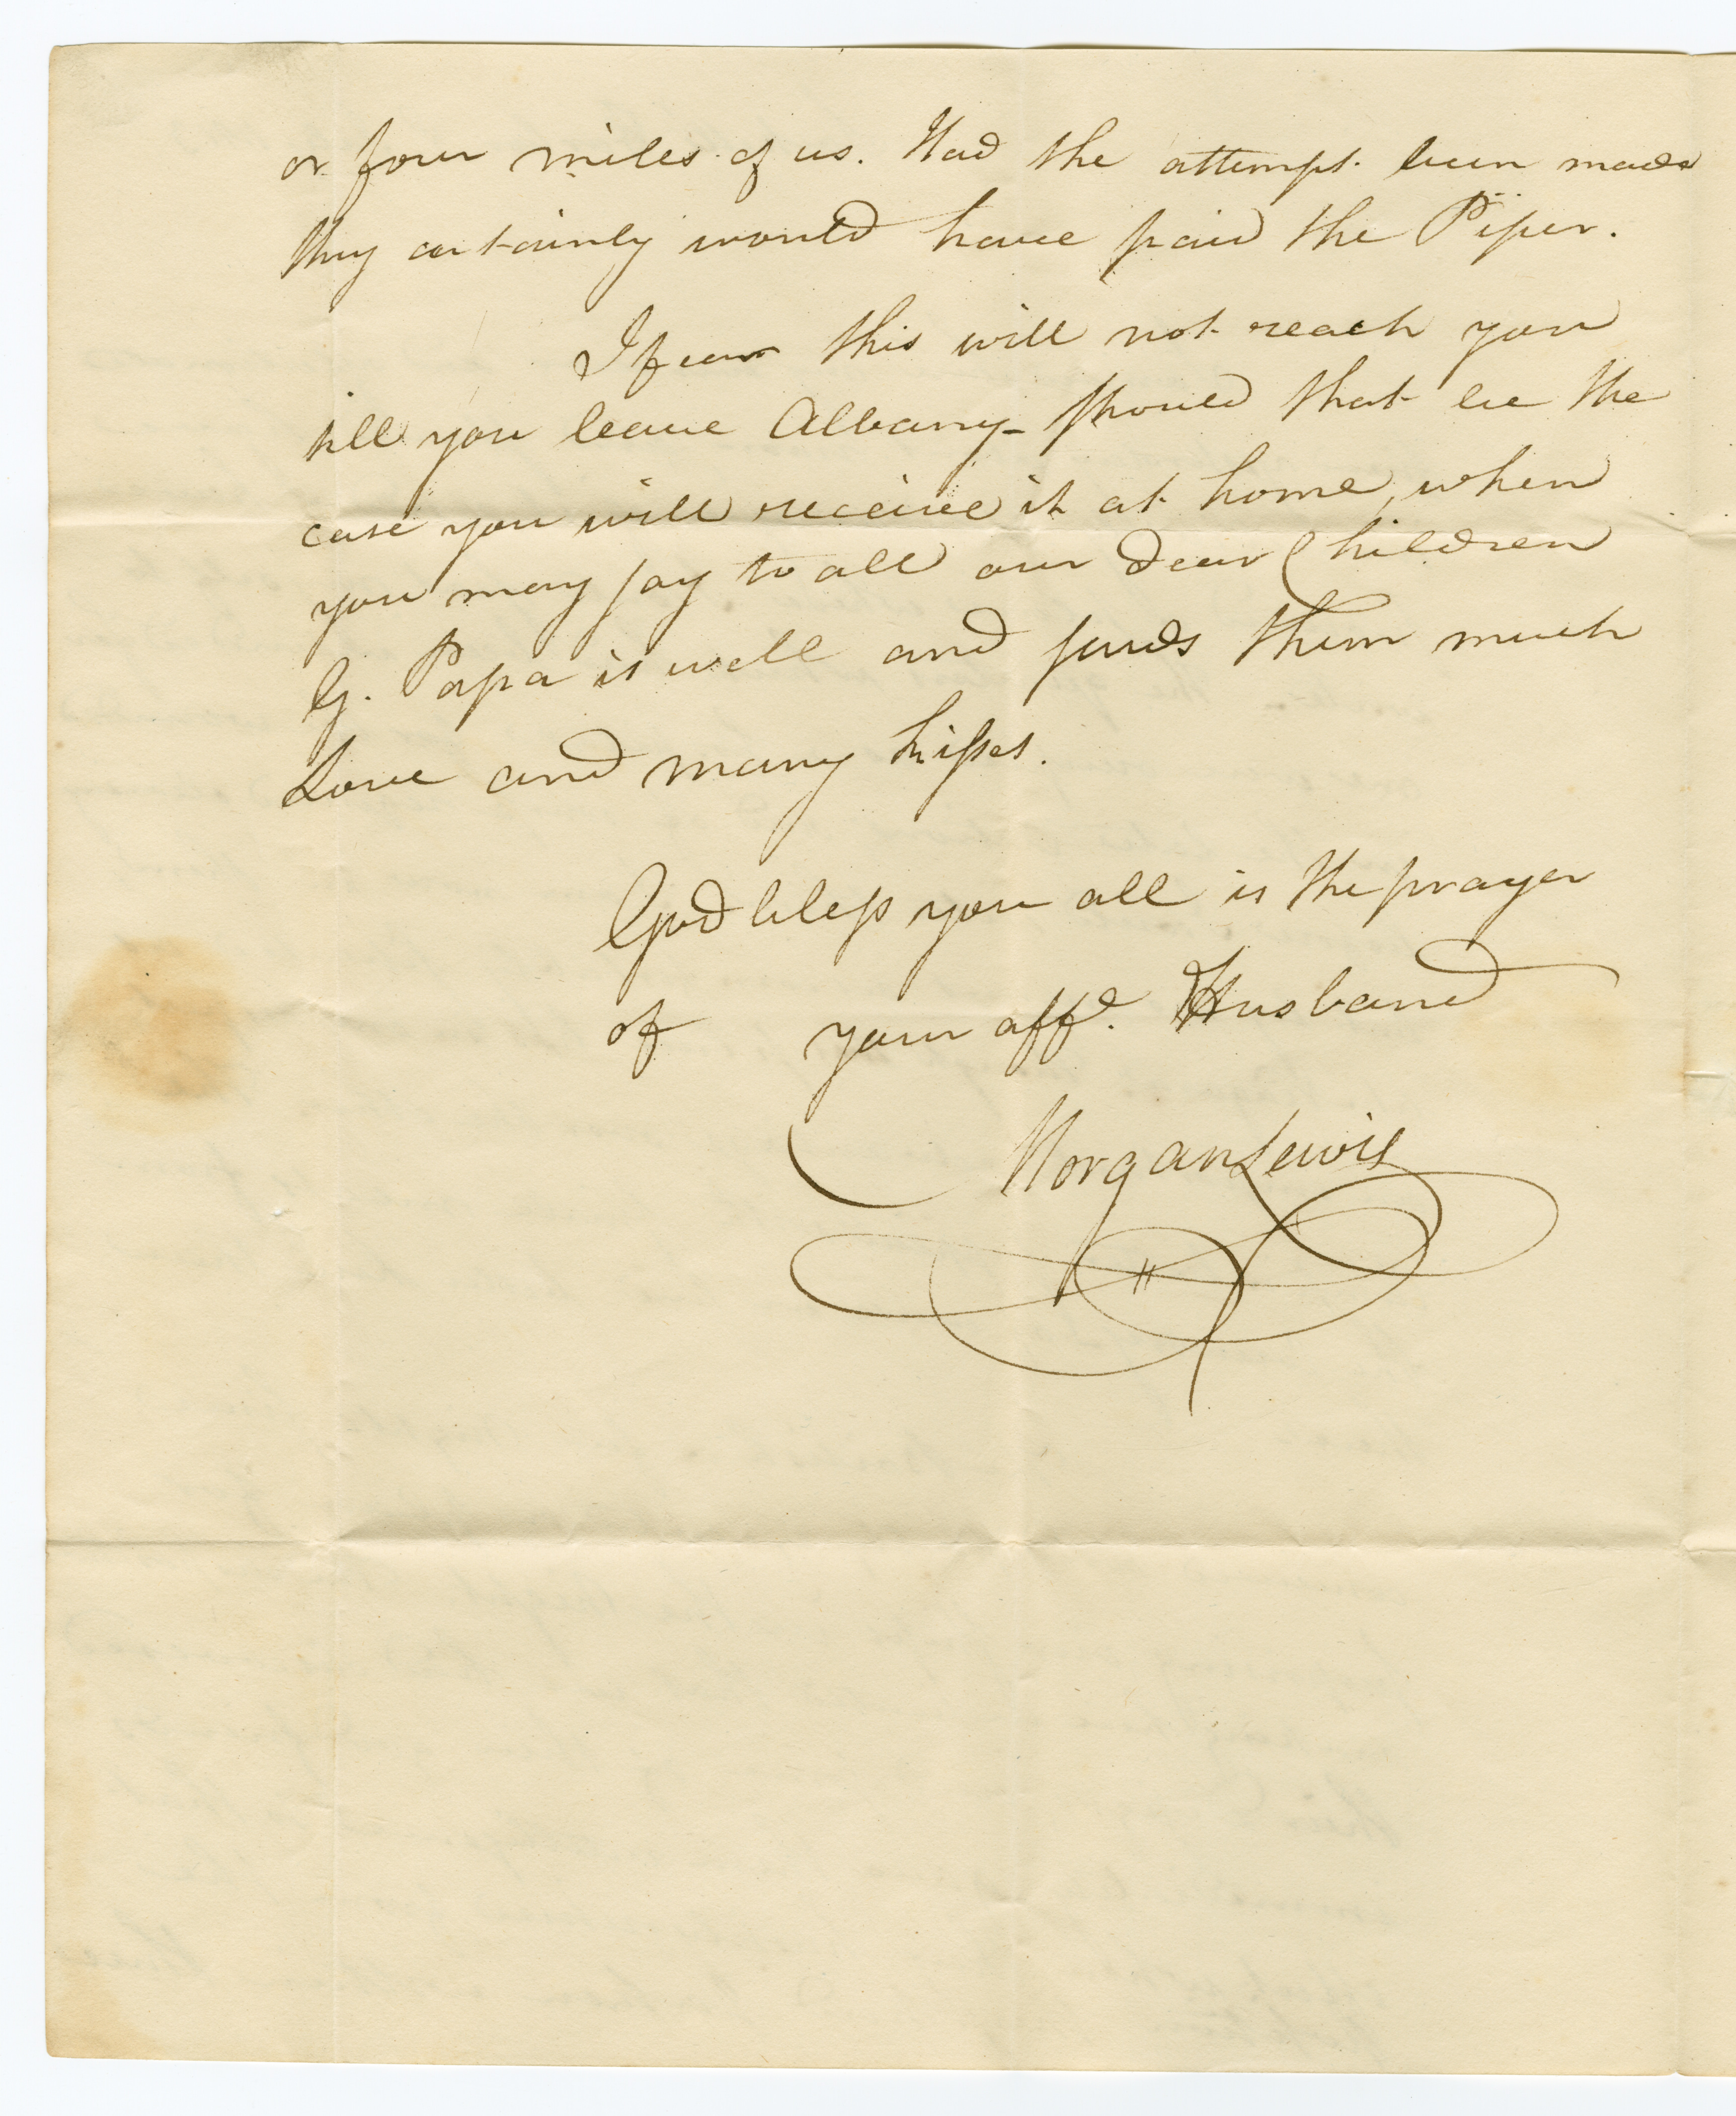 or four miles of us. Had the attempt been made
they certainly would have paid the Piper.
I fear this will not reach you
till you leave Albany – Should that be the
case you will receive it at home, when
you may say to all our dear Children
G. Papa is well and sends them much
Love and many kisses.
God bless you all is the prayer
of your affe. Husband
Morgan Lewis